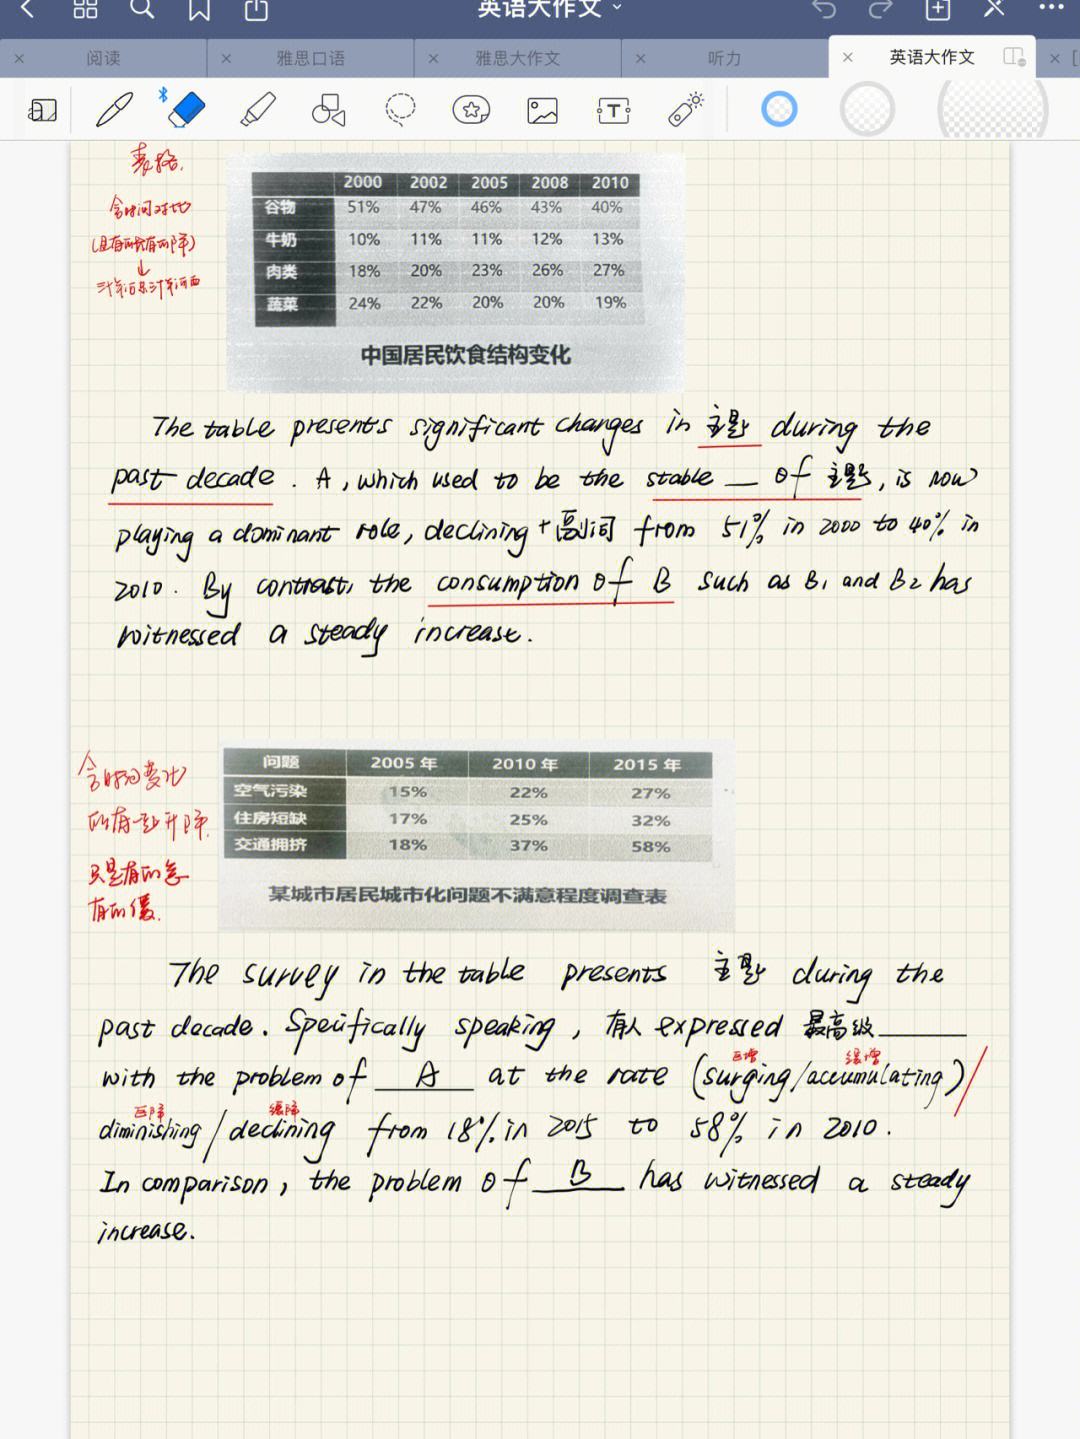 英语大作文
阅读
雅思口语
雅思大作文
听力
英语大作文
表格.
含时间对比
(且有的升有的降)
三十年河东三十年河西
2000 2002 2005 2008 2010
谷物 51% 47% 46% 43% 40%
牛奶 10% 11% 11% 12% 13%
肉类 18% 20% 23% 26% 27%
蔬菜 24% 22% 20% 20% 19%
中国居民饮食结构变化
The table presents significant changes in 主题 during the
past decade. A, which used to be the stable __ of 主题, is now
playing a dominant role, declining + 副词 from 51% in 2000 to 40% in
2010. By contrast, the consumption of B such as B1 and B2 has
witnessed a steady increase.
含时间变化
所有一起升降.
只是有的急
有的缓.
问题 2005 年 2010 年 2015 年
空气污染 15% 22% 27%
住房短缺 17% 25% 32%
交通拥挤 18% 37% 58%
某城市居民城市化问题不满意程度调查表
The survey in the table presents 主题 during the
past decade. Specifically speaking, 有人 expressed 最高级______
with the problem of __A__ at the rate (surging/accumulating)/
急增 缓增
急降 缓降
diminishing/declining from 18% in 2015 to 58% in 2010.
In comparison, the problem of __B__ has witnessed a steady
increase.